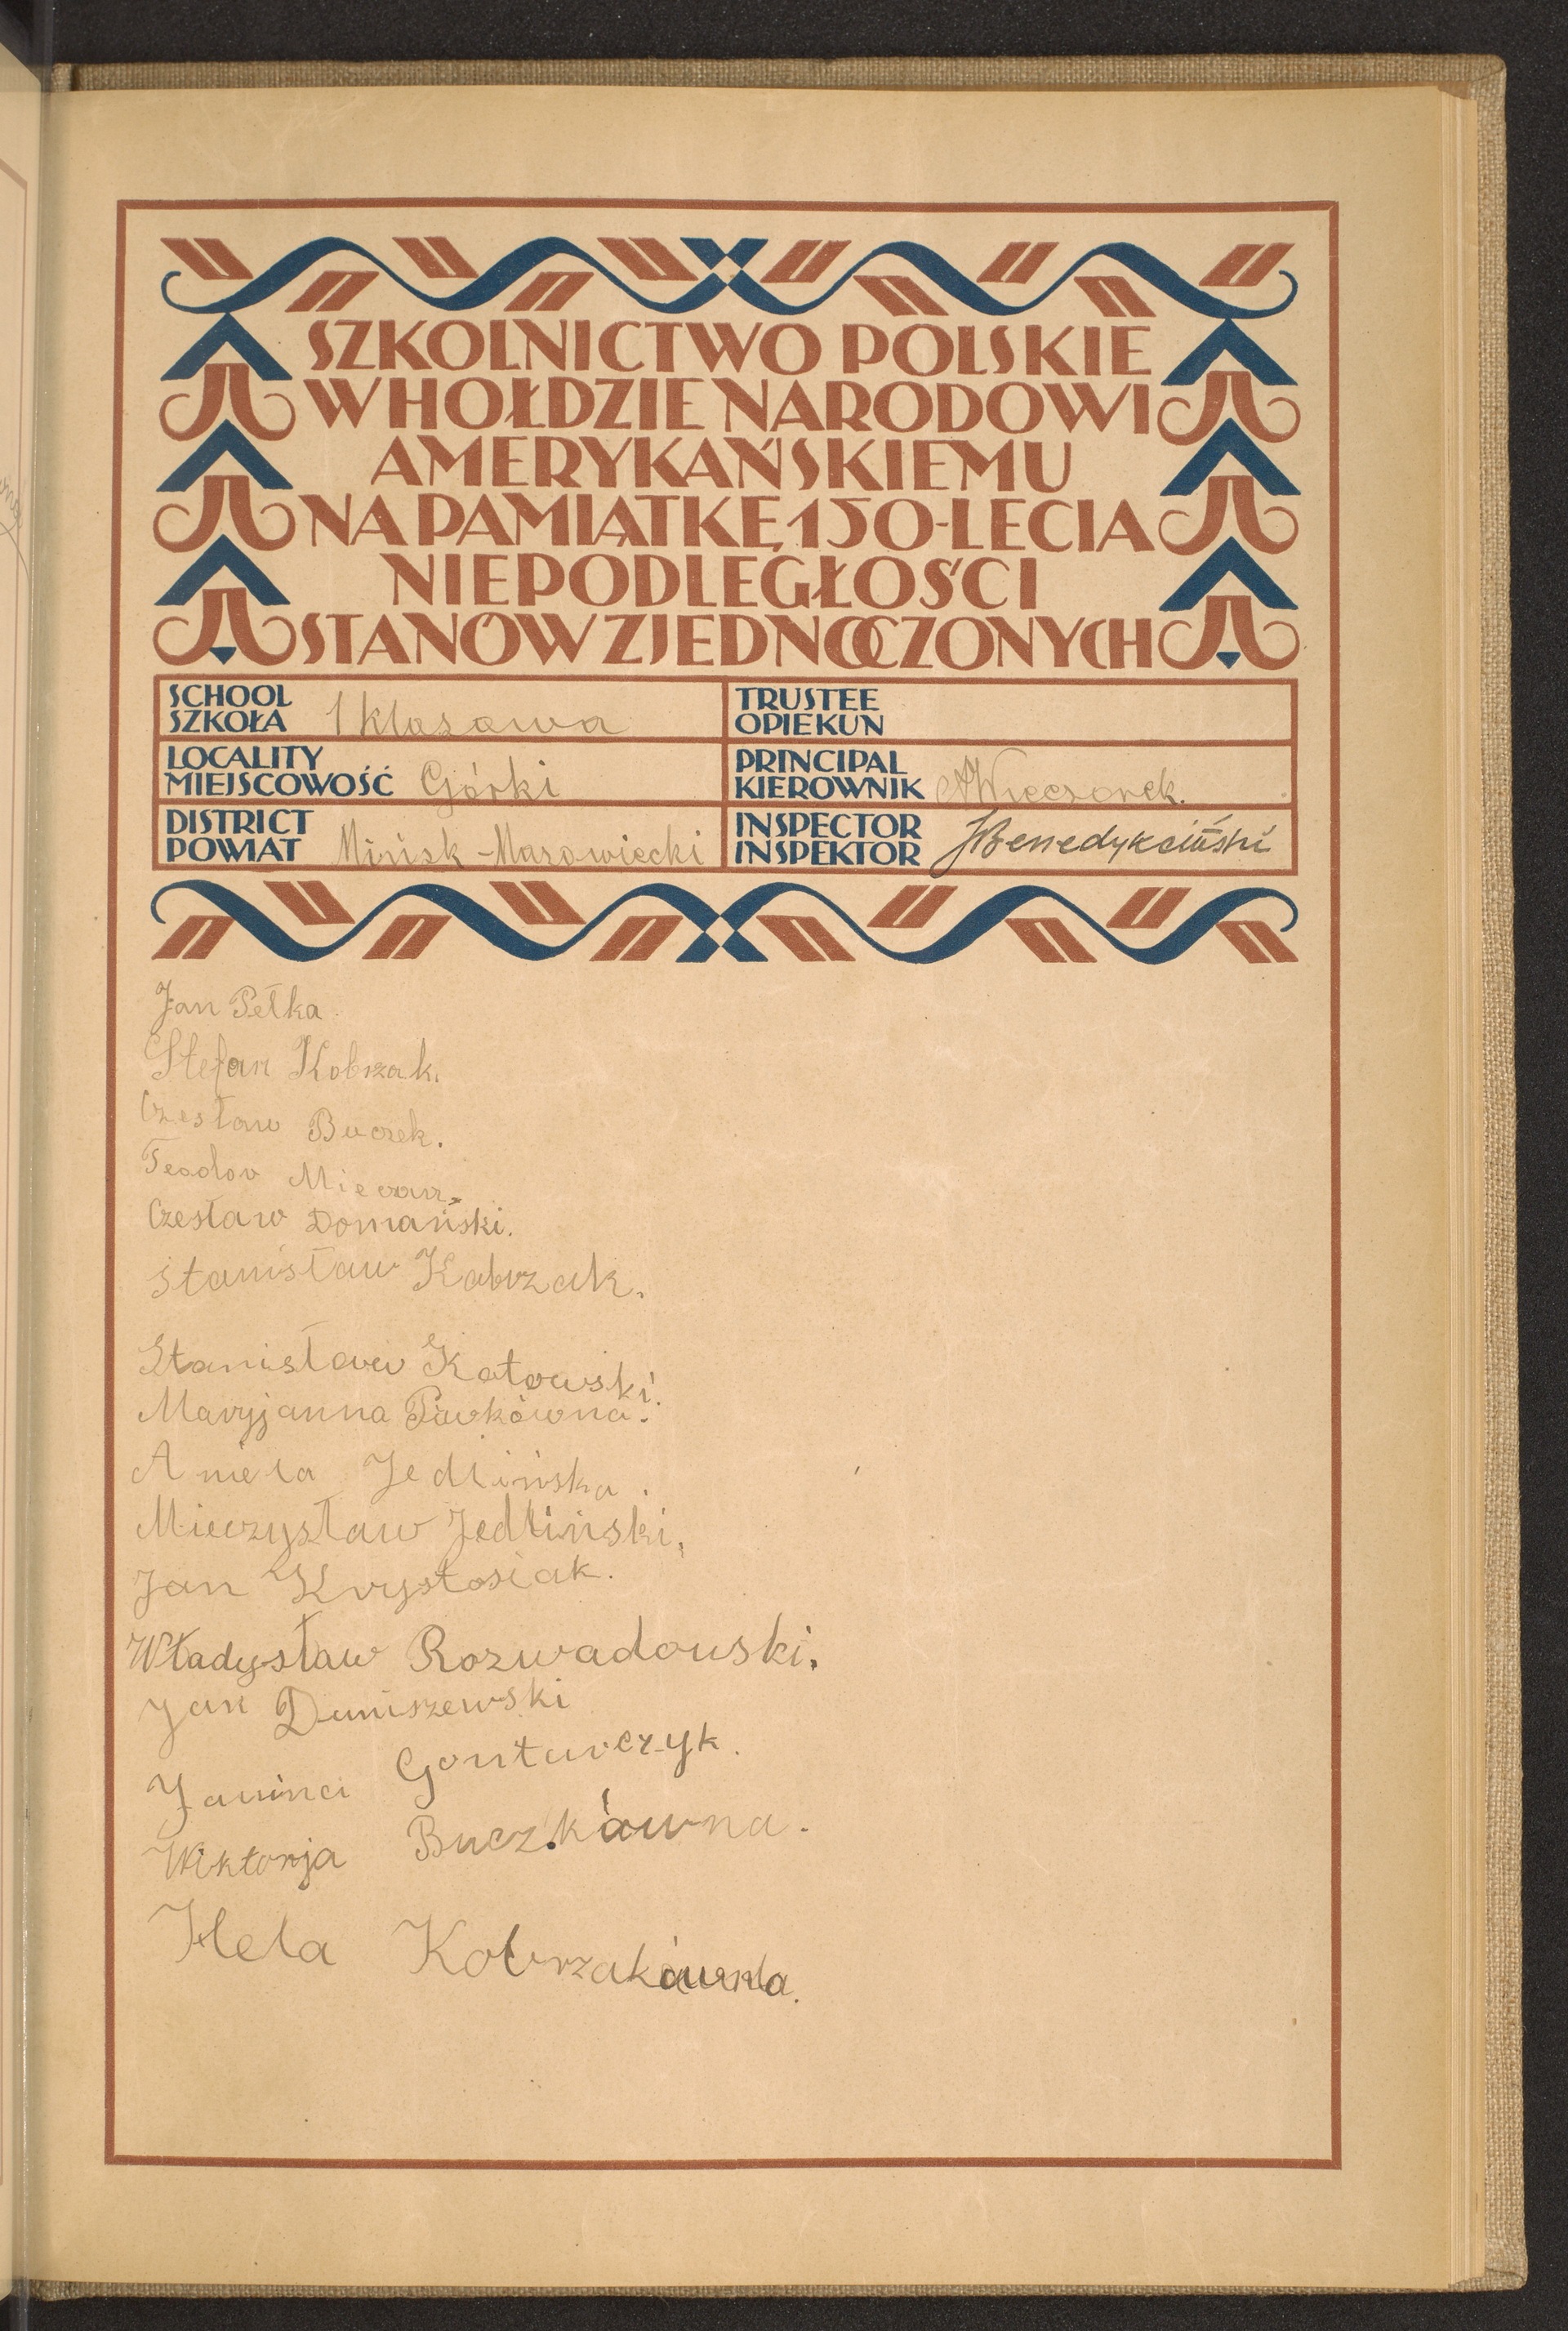 SZKOLNICTWO POLSKIE
W HOŁDZIE NARODOWI
AMERYKAŃSKIEMU
NA PAMIĄTKĘ 150-LECIA
NIEPODLEGŁOŚCI
STANÓW ZJEDNOCZONYCH
SCHOOL
SZKOŁA 1 klasowa
TRUSTEE
OPIEKUN
LOCALITY
MIEJSCOWOŚĆ Górki
PRINCIPAL
KIEROWNIK AWieczorek.
DISTRICT
POWIAT Mińsk-Mazowiecki
INSPECTOR
INSPEKTOR JBenedykciński
Jan Pełka.
Stefan Kobrzak.
Czesław Buczek.
Teodor
Czesław Domański.
Stanisław Kabrzak.
Stanisław Kotowski.
Maryjanna
Aniela Jedlińska.
Mieczysław Jedliński,
Jan Krystosiak.
Władysław Rozwadowski.
Jan Duniszewski
Janina Gontarczyk.
Wiktorja Buczkówna.
Hela Kobrzakówna.